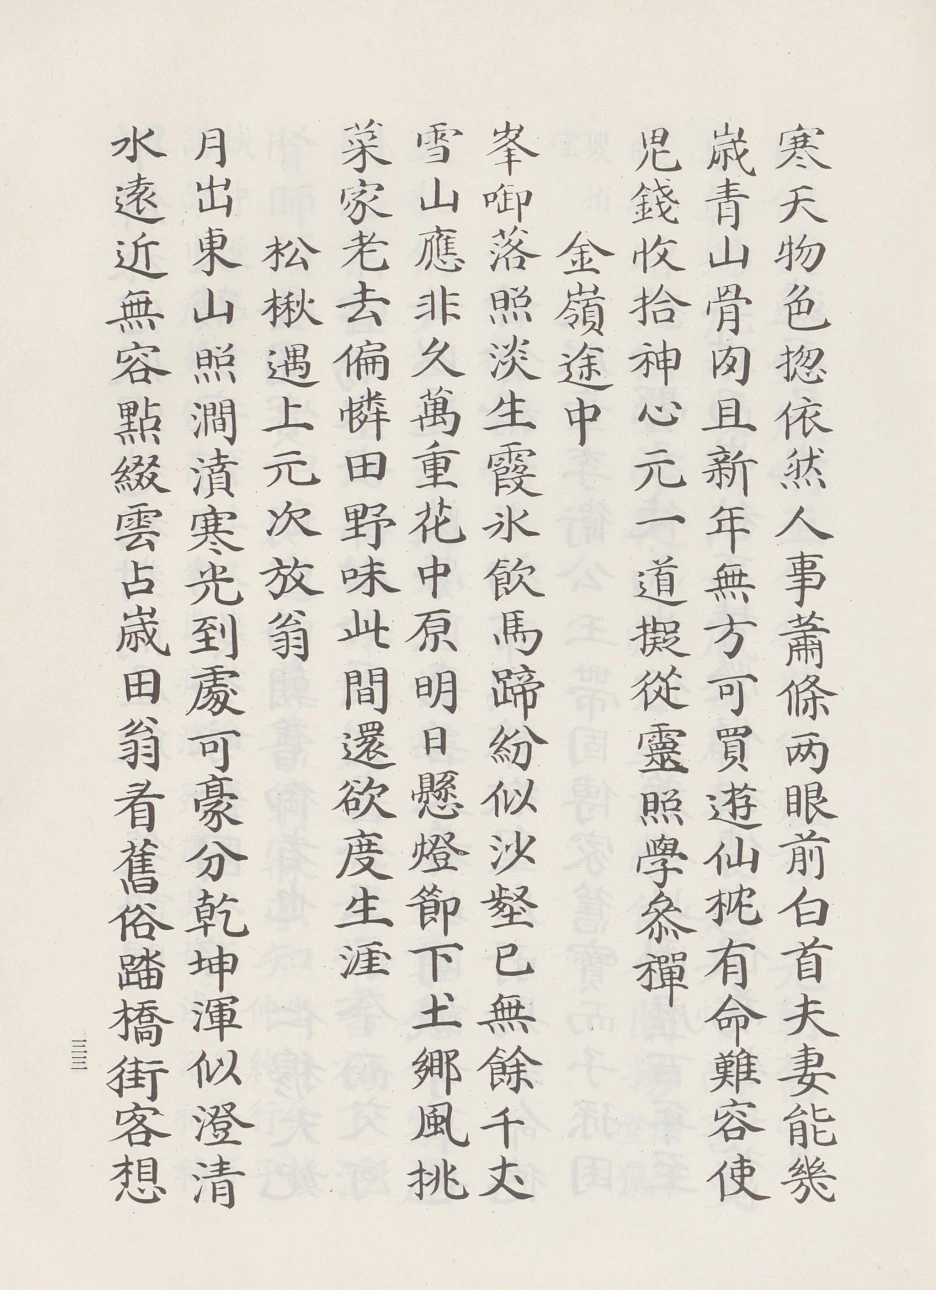 寒天物色揔依然人事蕭條两眼前白首夫妻能幾
歲青山骨肉且新年無方可買遊仙枕有命難容使
児錢收拾神心元一道擬從靈照學叅禪
金嶺途中
峯啣落照淡生霞氷飮馬蹄紛似沙壑已無餘千丈
雪山應非久萬重花中原明日懸燈節下土鄉風挑
菜家老去偏憐田野味此間還欲度生涯
松楸遇上元次放翁
月出東山照澗濆寒光到處可豪分乾坤渾似澄清
水遠近無容點綴雲占歲田翁看舊俗踏橋街客想
三三